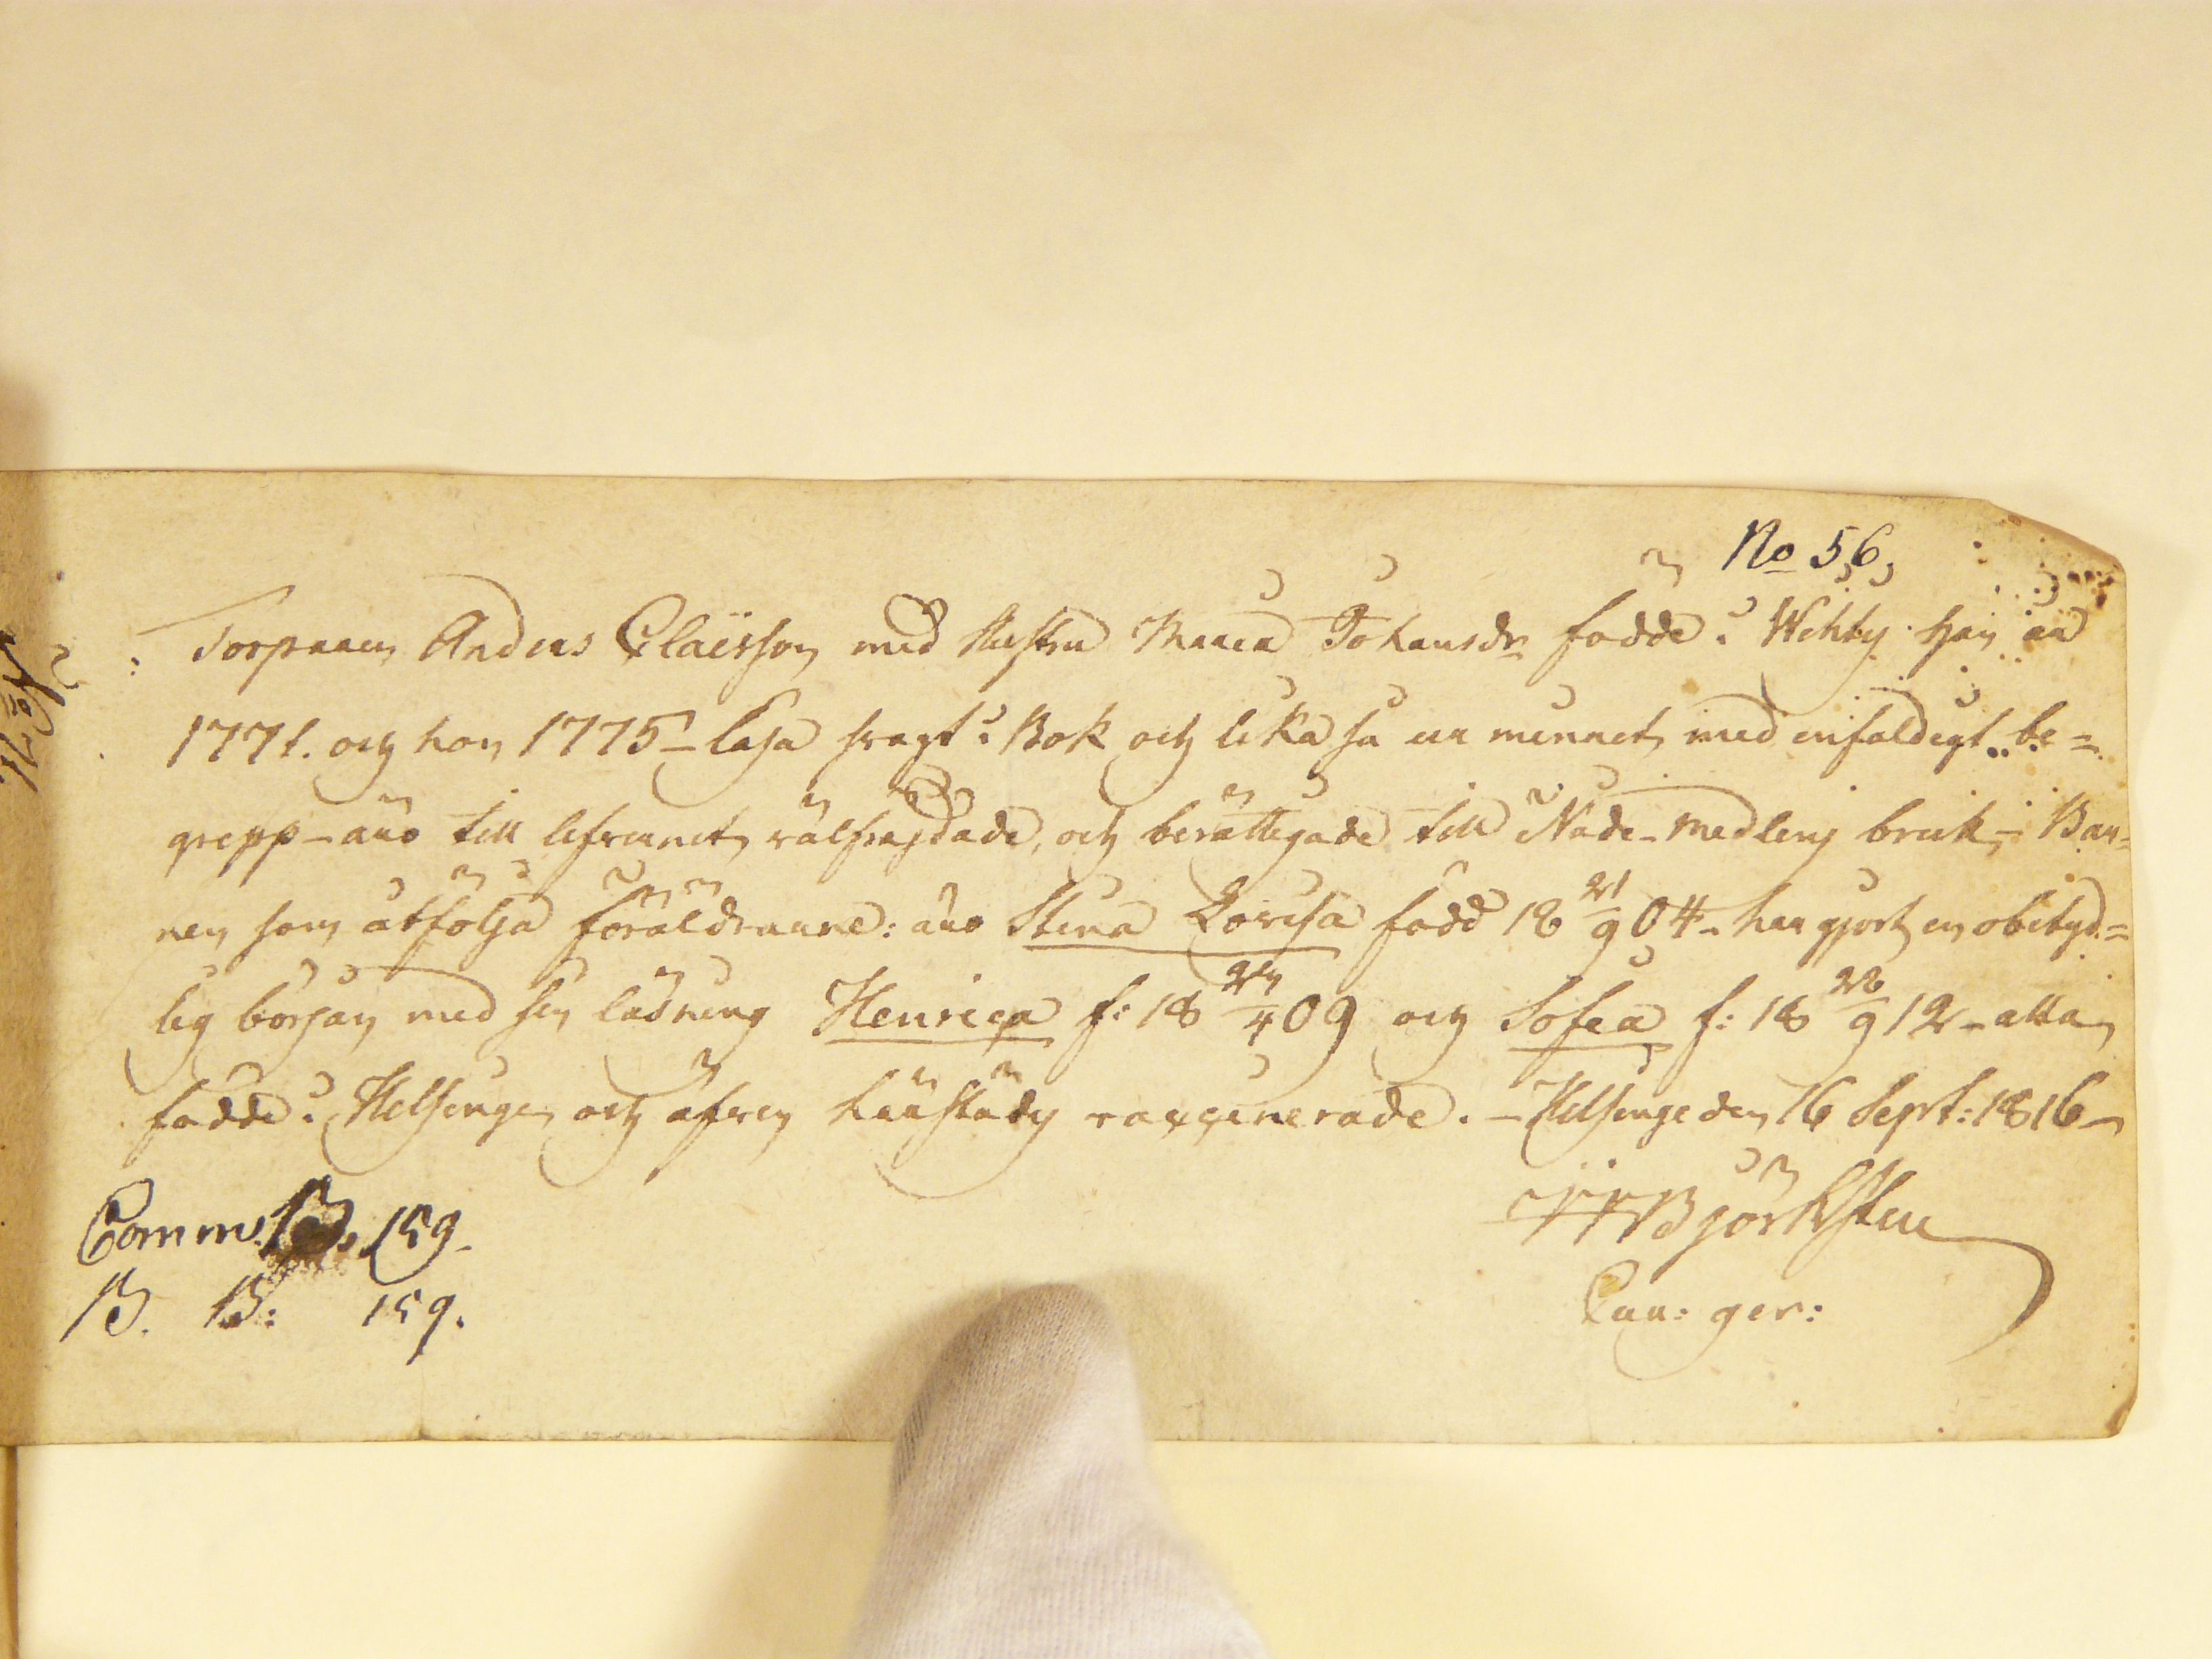 No 56.
Torparen Anders Claësson med hustru Maria Johansdr födde i Wihty. han är
1771. och hon 1775 - läsa svagt i Bok och lika så ur minnet, med enfaldigt be=
grepp - äro till lefvernet välfrejdade, och berättigade till Nåde-medlens bruk - Bar=
nen som åtfölja föräldrarne: äro Stina Lovisa född 18 21/9 04 - har gjort en obetyd=
lig början med sin läsning Henrica f: 18 27/4 09 och Sofia f: 18 26/9 12 - alla
födde i Helsinge, och äfven härstädes vaccinerade. - Helsinge den 16 Sept: 1816 -
Björksten
Comm. B. 159.
B. B: 159.